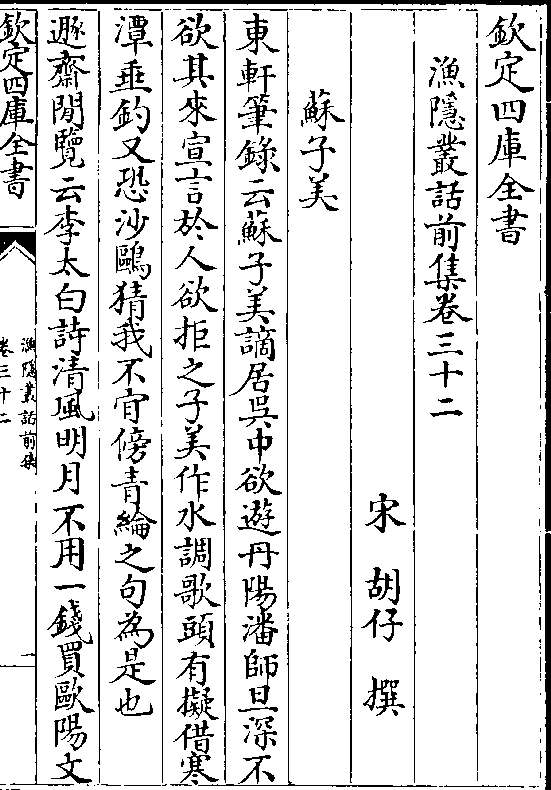 欽定四庫全書
漁隱叢話前集卷三十二
宋 胡仔 撰
蘇子美
東軒筆錄云蘇子美謫居吳中欲遊丹陽潘師旦深不
欲其來宣言於人欲拒之子美作水調歌頭有擬借寒
潭垂釣又恐沙鷗猜我不肎傍青綸之句為是也
遯齋閒覽云李太白詩清風明月不用一錢買歐陽文
欽定四庫全書
漁隱叢話前集
卷三十二
一